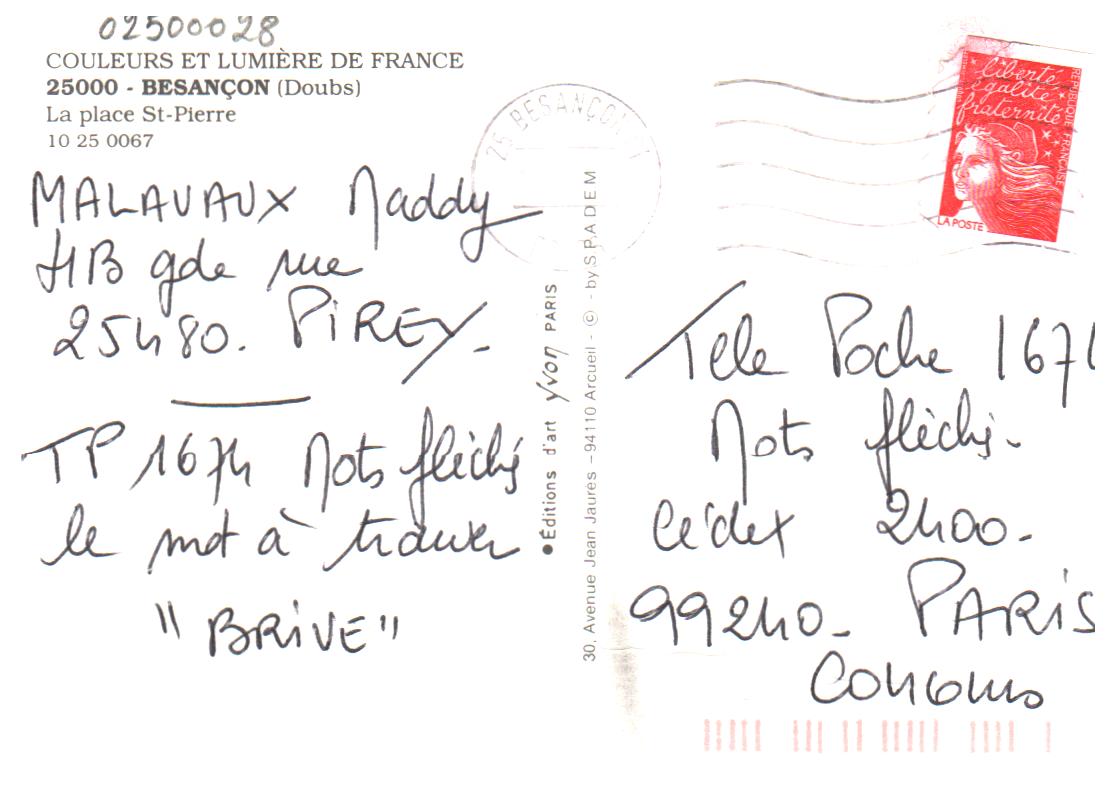 02500028
COULEURS ET LUMIÈRE DE FRANCE
25000 - BESANÇON (Doubs)
La place St-Pierre
10 25 0067
MALAVAUX Maddy
4B gde rue
25480. PiREY.
TP 1674 Mots fléchés
le mot à trouver
"BRiVE"
25 BESANÇON
●Éditions d'art yvon PARIS
30, Avenue Jean Jaurès – 94110 Arcueil - © - by SPADEM
liberté
égalité
fraternité
RÉPUBLIQUE FRANÇAISE
LA POSTE
Tele Poche 1674
Mots fléchés.
Cédex 2400.
99240. PARiS
Concours